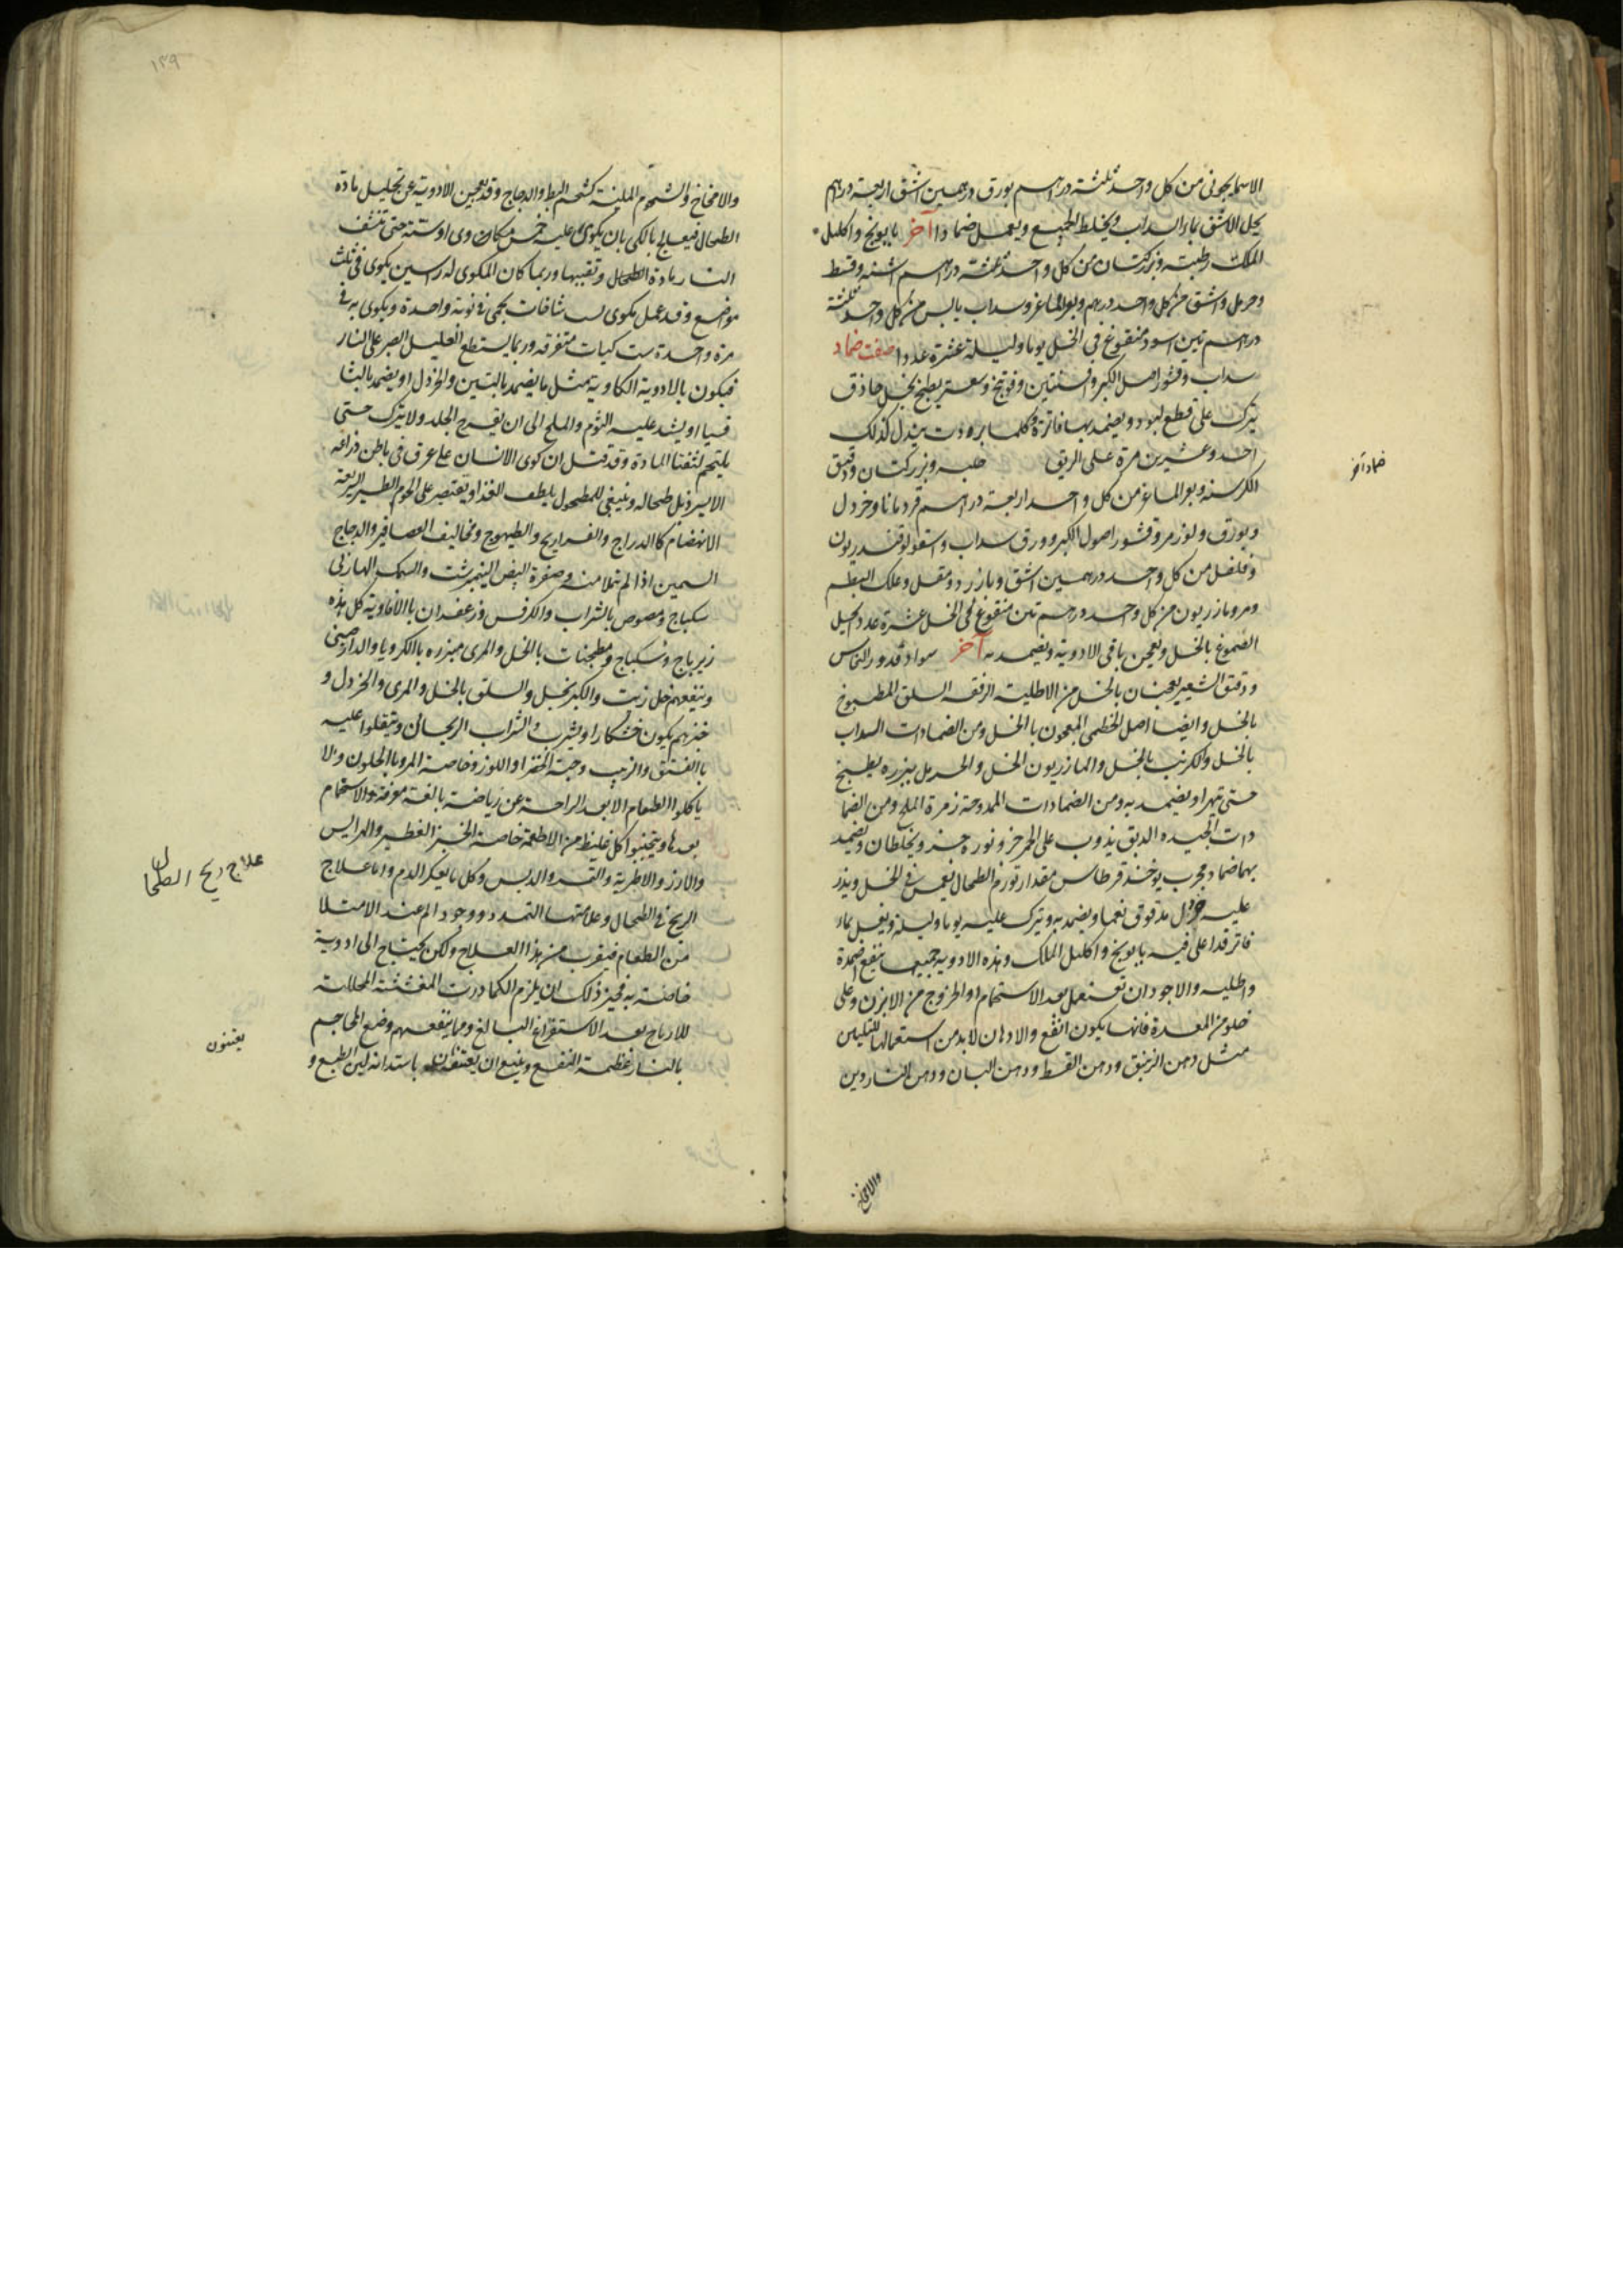 الاسمانجونى من كل واحد ثلثة دراهم بورق درهمين اشق اربعة دراهم
يحل الاشق بماء السداب و يخلط الجميع ويعمل ضمادا آخر بابونج واكليل
الملك رطبة وبزركتان من كل واحد ثلثة دراهم اشنه وقسط
وحرمل واشق من كل واحد درهم وبعر الماعز وسداب يابس من كل واحد ثلثة
دراهم تين اسود منقوع فى الخل يوما وليلة عشرة عددا صفت ضماد
سداب وقشور اصل الكبر وافسنتين وفوتنج وسعتر يطبخ بخل حاذق
يترك على قطع لبود ويضمد بها فاترة وكلما برودت يبدل كذلك
احد وعشرين مرة على الريق حلبه وبزركتان ودقيق
ضماد آخر
الكرسنه وبعر الماعز من كل واحد اربعة دراهم قردمانا وخردل
وبورق ولوز مر وقشور اصول الكبر وورق سداب واسقولوقندريون
وفلفل من كل واحد درهمين اشق وبازرد ومقل وعلك البطم
ومر ومازريون من كل واحد درهم تين منقوع فى الخل عشرة عدد الحيل
الصموغ بالخل ويعجن باقى الادوية ويضمد به آخر سواد قدور النحاس
ودقيق الشعير يعجنان بالخل من الاطلية الرفقه السلق المطبوخ
بالخل وايضا اصل الخطمى المعجون باالخل ومن الضمادات السداب
بالخل والكرنب بالخل والمازريون الخل والحرمل ببزره يطبخ
حتى يتهرا ويضمد به ومن الضمادات الممدوحة زمرة الملح ومن الضما
دات الجيده الدبق يذوب على الجمر حز ونوره جز ويخلطان ويضمد
بهما ضماد مجرب يوخذ قرطاس مقدار تورم الطحال يغمس فى الخل ويذر
عليه خردل مدقوق نعما ويضمد به ويترك عليه يوما وليلة ويغسل بماء
فاتر قد اغلى فيه بابونج واكليل الملك وهذه الادوية جميعها ينفع اضمدة
واطليه والاجود ان تستعمل بعد الاستحمام او الخروج من الابزن وعلى
خلو من المعدة فانها يكون انفع والادهان لابد من استعمالها للتليين
مثل دهن الزنبق ودهن القسط ودهن البان ودهن الناردين
والامخاخ
١٣٩
والامخاخ والشحوم الملينة كشحم البط والدجاج وقد يعجين الادوية عن تحليل مادة
الطحال فيعالج بالكى بان يكوى عليه خمس مكان وى او ستة حتى تنشف
النار مادة الطحال وتفنيها وربما كان المكوى له راسين يكوى فى ثلث
مواضع وقد عمل مكوى ست شافات يحمى فى نوبة واحدة ويكوى به فى
مرة واحدة ست كيات متفرقه وربما يستطع العليل الصبر على النار
فيكون بالادوية الكاوية مثل ما يضمد بالتين والخردل او يضمد بالثا
فسيا او يشد عليه الثوم والملح الى ان يقرح الجلد ولا يترك حتى
يلتحم لتفتا المادة وقد قتل ان كوى الانسان على عرق فى باطن ذراعه
الايسر ذبل طحاله وينبغى للمطحول يلطف الغذا ويقتصر على لحوم الطير السريعة
الانهضام كاالدراج والفراريج والطيهوج ومخاليف العصافير والدجاج
السمين اذا لم تملا منه وصفرة البيض النيمبرشت والسمك الهازلى
سكباج ومصوص بالشراب والكرفس وزعفران باالافاوية كل هذه
زيرباج وسكباج ومطجنات بالخل والمرى مبزره باالكرويا والدارصينى
وينفعهم خل زيت والكبر بخل والسلق بالخل والمرى والخردل و
خبزهم يكون خشكارا ويشرب الشراب الريحانى ويتنقلوا عليه
باالفستق والزبيب وحبة الخضرا واللوز وخاصة المر وباالحلون ولا
ياكلوا الطعام الا بعد الراحة عن رياضة بالغة معرفة والاستحمام
بعدها ويتجنبوا اكل غليظ من الاطعمة خاصة الخبز الفطير والهرايس
والارز والاطرية والتمر والدبس وكل ما يعكر الدم واما علاج
علاج ريح الطحال
الريح فى الطحال وعلامتها التمدد ووجود الم عند الامتلا
من الطعام فيقرب من هذا العلاج ولكن يحتاج الى ادوية
خاصة به فخير ذلك ان يلزم الكمادرت المفششة المحللة
للارياح بعد الاستفراغ البالغ ومما ينفعهم وضع المحاجم
بالنار عظيمة النفع وينبغ ان يعتنون باستدانه لين الطبع و
يعتنون